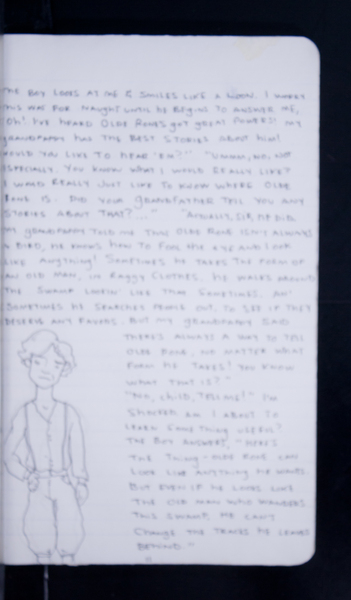 THE BOY LOOKS AT ME & SMILES LIKE A LOON. I WORRY
THIS WAS FOR NAUGHT UNTIL HE BEGINS TO ANSWER ME,
"OH! I'VE HEARD OLDE RONE'S got GREAT POWERS! MY
GRANDPAPPY HAS THE BEST STORIES ABOUT HIM!
WOULD YOU LIKE TO HEAR 'EM?" "UMMM, NO, NOT
ESPECIALLY. YOU KNOW WHAT I WOULD REALLY LIKE?
I WOULD REALLY JUST LIKE TO KNOW WHERE OLDE
RONE IS. DID YOUR GRANDFATHER TELL YOU ANY
STORIES ABOUT THAT?..." SIR, HE DID.
MY GRANDPAPPY TOLD ME THAT OLDE RONE ISN'T ALWAYS
A BIRD, HE KNOWS HOW TO FOOL THE EYE AND LOOK
LIKE ANYTHING! SOMETIMES HE TAKES THE FORM OF
AN OLD MAN, IN RAGGY CLOTHES. HE WALKS AROUND
THE SWAMP LIKE THAT SOMETIMES. AN'
SOMETIMES HE SEARCHES PEOPLE OUT, TO SEE IF THEY
DESERVE ANY FAVORS. BUT MY GRANDPAPPY SAID
THERE'S ALWAYS A WAY TO TELL
OLDE RONE, NO MATTER WHAT
FORM HE TAKES! YOU KNOW
WHAT THAT IS?"
"NO, CHILD, TELL ME!" I'M
SHOCKED. AM I ABOUT TO
LEARN SOMETHING USEFUL?
THE BOY ANSWERS, "HERE'S
THE THING - OLDE RONE CAN
LOOK LIKE ANYTHING HE WANTS.
BUT EVEN IF HE LOOKS LIKE
THE OLD MAN WHO WANDERS
THIS SWAMP, HE CAN'T
CHANGE THE TRACKS HE LEAVES
BEHIND."